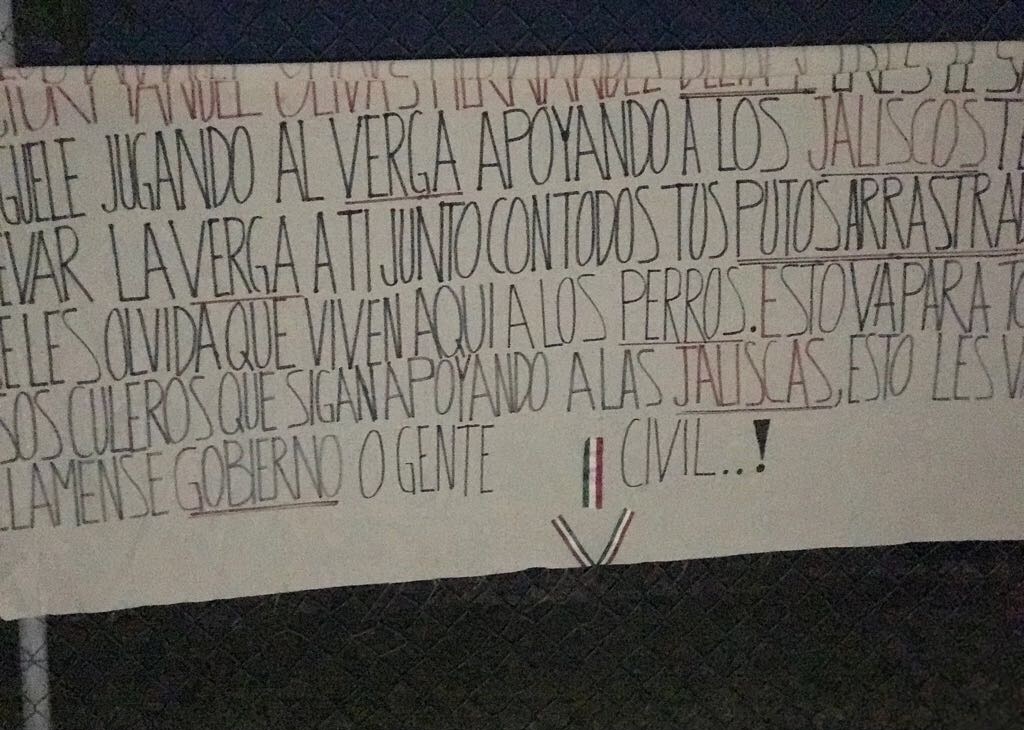 OLIVAS HERNANDEZ ERES EL
JUGANDO AL VERGA APOYANDO A LOS JALISCOS
LA VERGA A TI JUNTO CON TODOS TUS PUTOS
LES OLVIDA QUE VIVEN AQUI A LOS PERROS. ESTO VA PARA
CULEROS QUE SIGAN APOYANDO A LAS JALISCAS, ESTO LES
LLAMENSE GOBIERNO O GENTE CIVIL..!